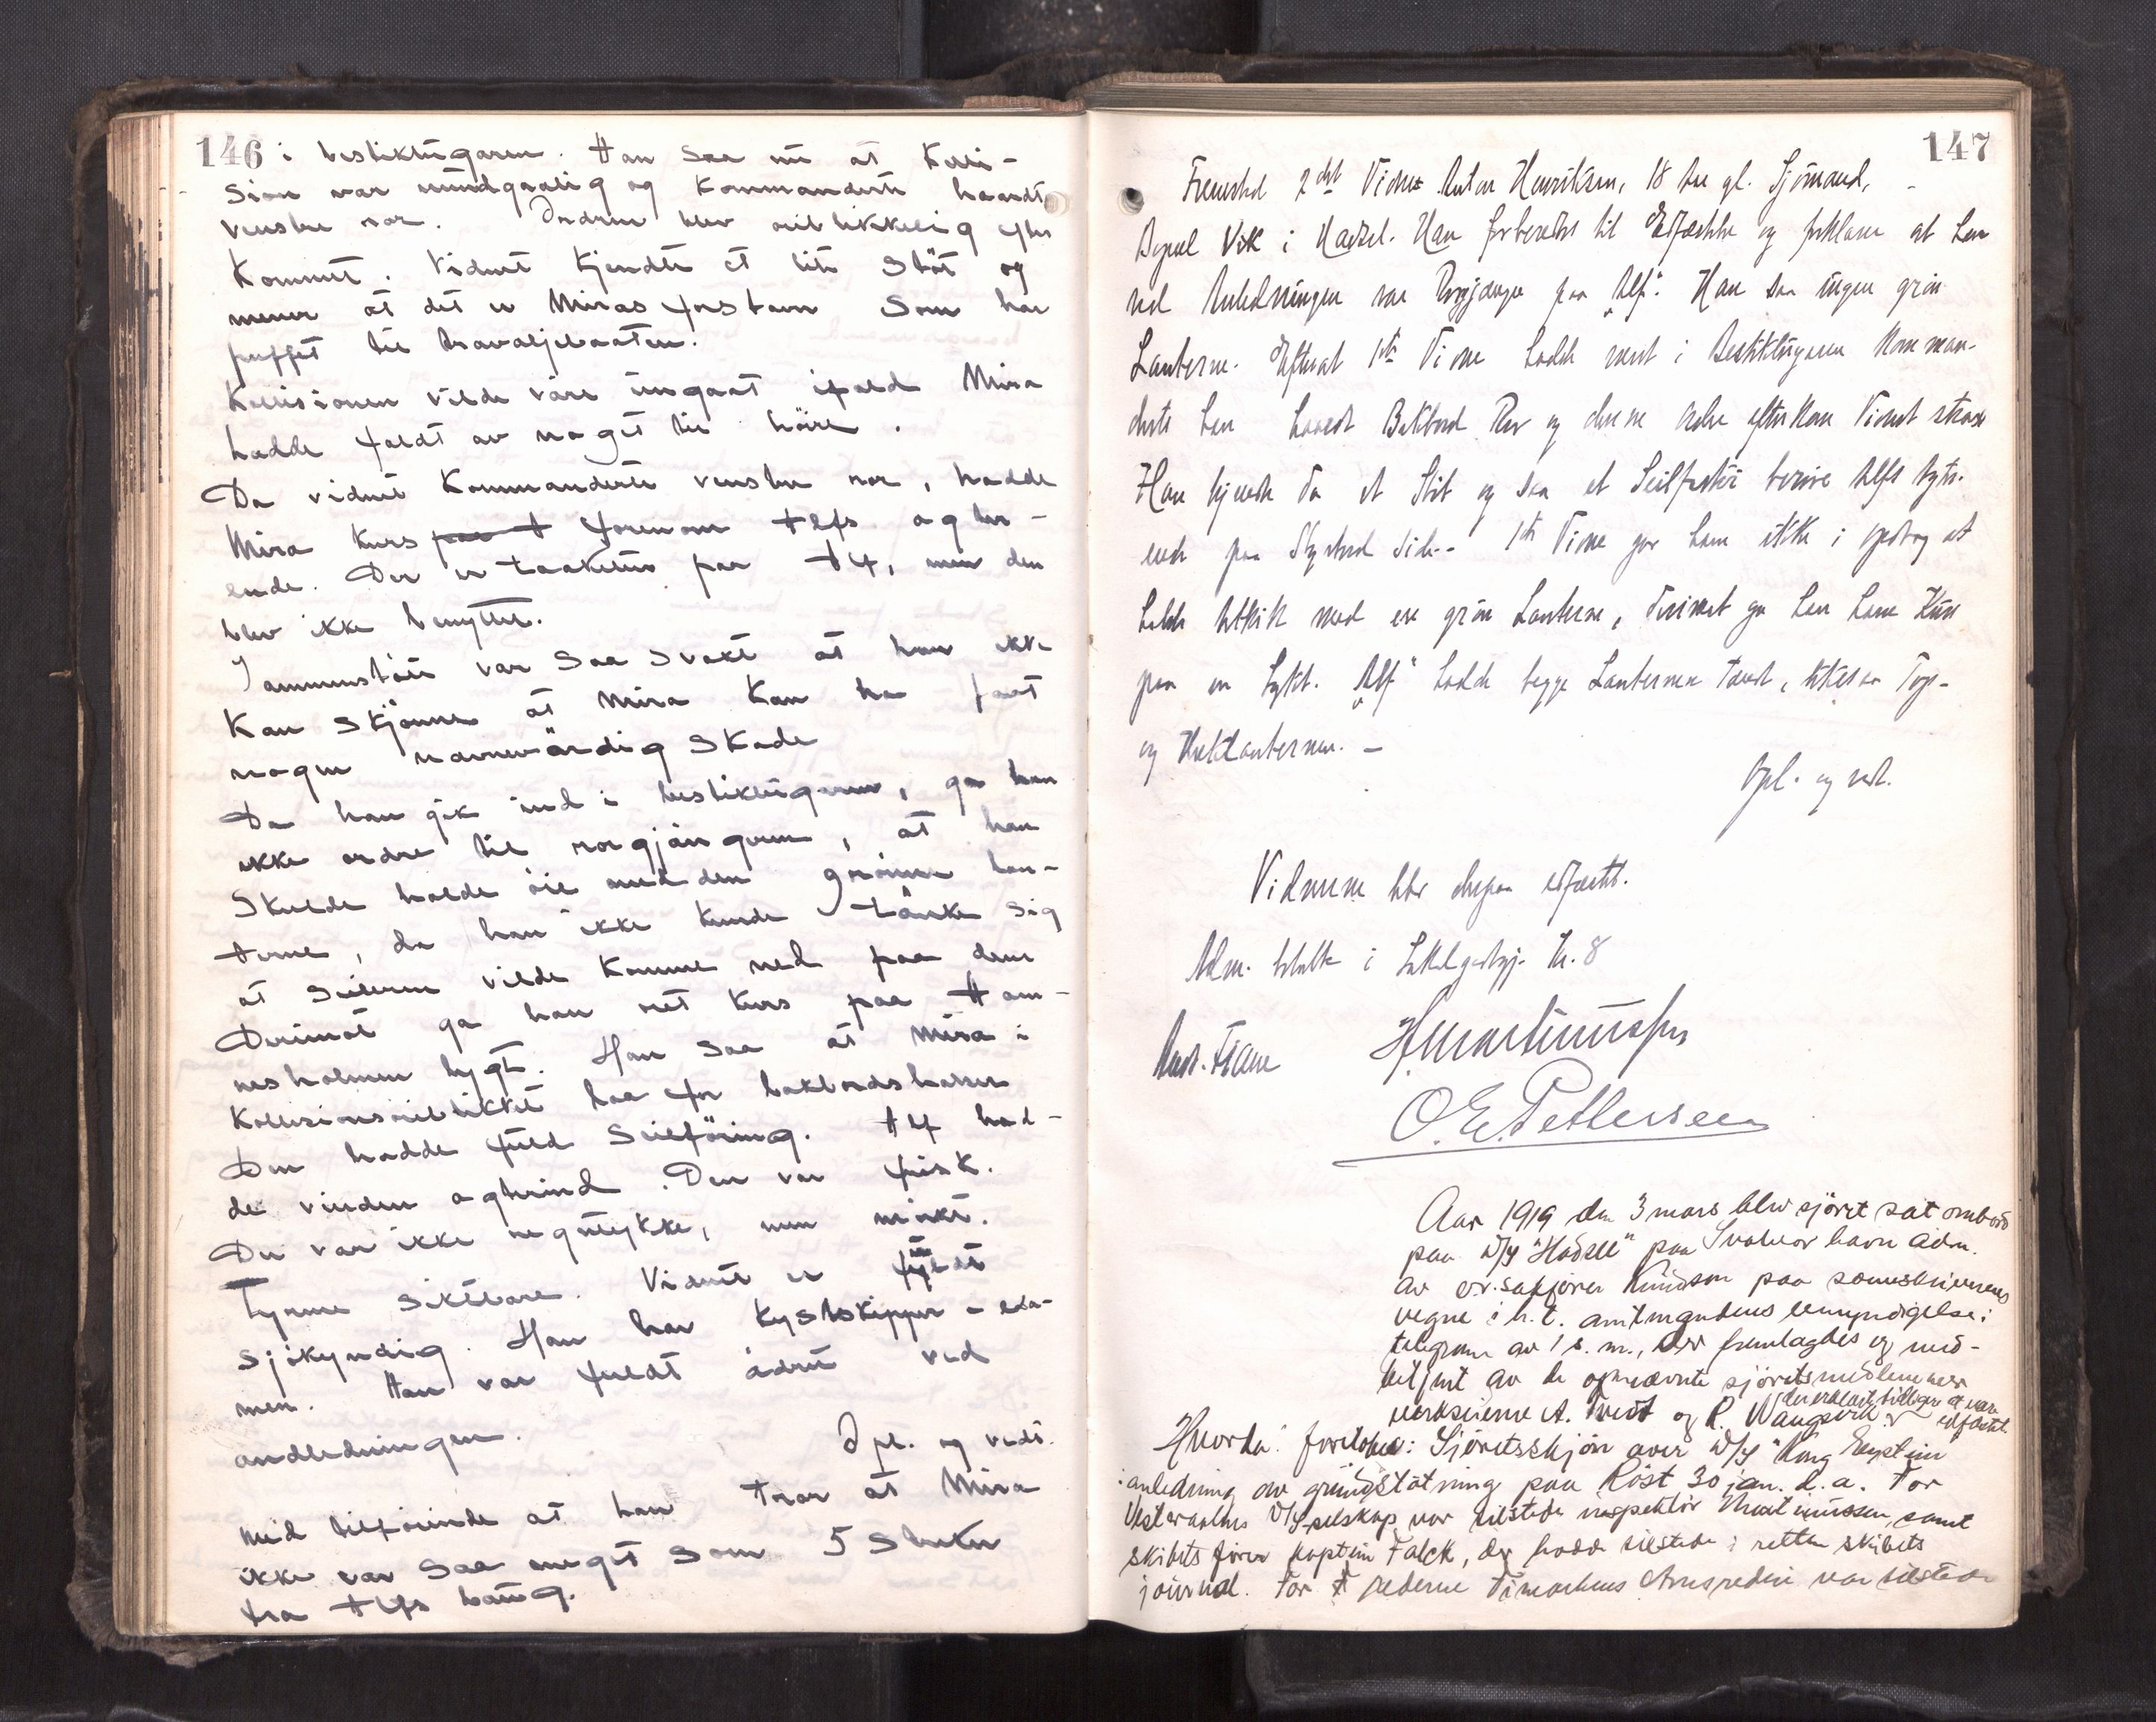 146
i bestiktügaren. Han saa nu at Kolli-
sion var uundgaalig og Kommanderte haardt
venstre ror. Ordren blev øieblikkelig efter
kommet. Vidnet kjendte et lite Støt og
mener at det er Miras forstavn Som har
puffet til travaljebaaten.
Kollisionen vilde være ungaat ifald Mira
hadde faldt av noget til høire.
Da vidnet Kommanderte venstre ror, hadde
Mira Kurs forenom Alfs agter-
ende. Der er taakelur paa Alf, men den
blev ikke benyttet.
Sammenstøt var Saa Svakt at han ikke
Kan Skjønne at Mira Kan ha faat
nogen navneværdig Skade
Da han gik ind i bestiktügaren, ga han
ikke ordre til rorgjængeren, at han
Skulde holde øie med den grønne lan-
terne, da han ikke kunde tænke sig
at Seileren vilde komme ned paa dem
Derimot ga han ret Kurs paa Ham-
nesholmen lygt. Han Saa at Mira i
Kollisionsøieblikket laa for bakbords halser
Den hadde fuld Seilføring. Alf had-
de vinden agterind. Den var frisk.
Det var ikke regntykke, men mørkt.
Tynne Siktbare. Vidnet er fuldt
Sjøkyndig. Han har Kystskipper-exa-
men. Han var fuldt ædru ved
andledningen.
Opl. og vedt.
Med tilføiende at han tror at Mira
ikke var Saa meget Som 5 Streker
fra Alfs baug.
147
Fremstod 2det Vidne Anton Henriksen, 18 Aar gl. Sjømand,
Bopæl Vik i Hadsel. Han forberedtes til Edfæstelse og forklarer at han
ved Anledningen var Rorgjænger paa "Alf". Han saa ingen grøn
Lanterne. Efterat 1ste Vidne hadde været i Bestiktügaren komman-
derte han haardt Bakbord Ror og denne Ordre efterkom Vidnet strax
Han kjendte da et Støt og saa et Seilfartøi berøre Alfs Agter-
ende paa Styrbord Side. - 1ste Vidne gav ham ikke i opdrag at
holde Utkik med en grøn Lanterne, derimot ga han ham Kurs
paa en Lykt. "Alf" hadde begge Lanterner tændt, likesaa Top-
og Hæklanternen. -
Opl. og vedt.
Vidnerne blev derpaa edfæstet.
Adm. betalte i Lokalgodtgj. Kr. 8
H Martinussen
O. E. Pettersen
Aar 1919 den 3 mars blev sjøret sat ombord
paa D/S "Hadsel" paa Svolvær havn adm.
av o.r.sakfører Knudsen paa sorenskriverens
vegne i h. t. amtmandens bemyndigelse i
telegram av 1 s. m., der fremlagdes og med-
betjent av de opnævnte sjøretsmedlemmer
verkseierne A. Tvedt og R.
der erklært tidligere at være edfæstet
Hvorda: foretokes: Sjøretsskjøn over D/S "Kong Eystein
i anledning av grundstøtning paa Røst 30 jan. d. a. For
Vesteraalens D/S-selskap var tilstede inspektør Martinussen, samt
skibets fører kaptein Falck, der hadde tilstede i retten skibets
journal. For rederne Timarhens Arnsrederi var tilstede